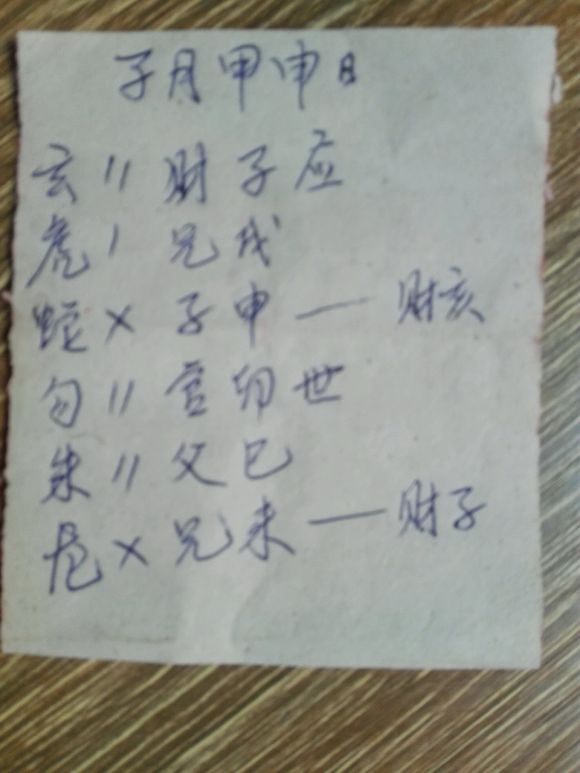 子月甲申日
玄〃财子应
虎′兄戌
蛇×子申—财亥
勾〃官卯世
朱〃父巳
龙×兄未—财子